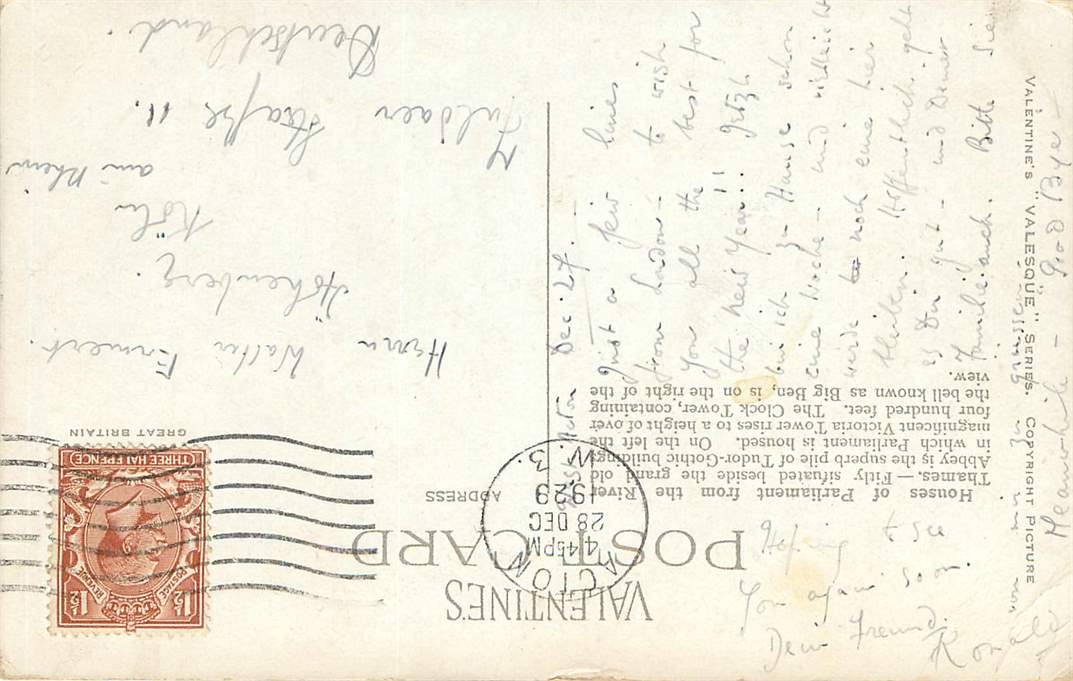 VALENTINE'S
POST CARD
ADDRESS
Houses of Parliament from the River
Thames. — Fitly situated beside the grand old
Abbey is the superb pile of Tudor-Gothic buildings
in which Parliament is housed. On the left the
magnificent Victoria Tower rises to a height of over
four hundred feet. The Clock Tower, containing
the bell known as Big Ben, is on the right of the
view.
VALENTINE'S "VALESQUE" SERIES. COPYRIGHT PICTURE
GREAT BRITAIN
POSTAGE REVENUE
1½ 1½
THREE HALFPENCE
ACTON
4.45PM
28 DEC
1929
W.3.
Herrn Walter
Höhenberg.
Köln
am Rhein
Fuldaer Straße 11.
Deutschland.
Dec. 27.
Just a few lines
from London - to wish
You all the best for
the New Year!!
bin ich zu Hause schon
eine Woche - und vielleicht
werde noch eine hier
bleiben. Hoffentlich geht
es Dir gut - und Deiner
Familie auch. Bitte Sie
von mir zu grüssen
Meanwhile - Good Bye -
Hoping to see
You again soon.
Dein Freund.
Ronald